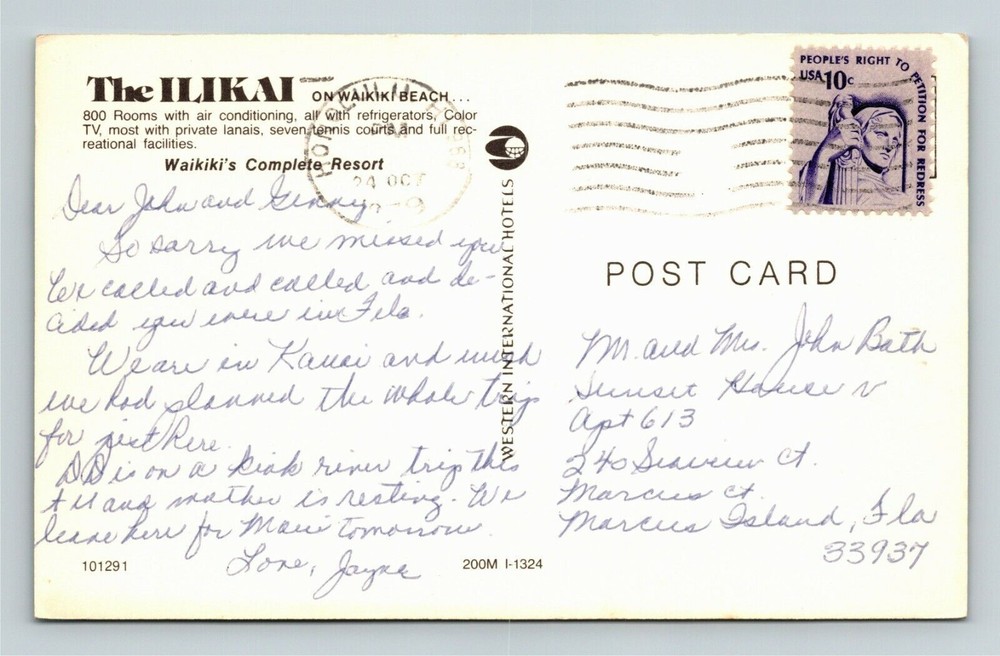 The ILIKAI ON WAIKIKI BEACH...
800 Rooms with air conditioning, all with refrigerators, Color
TV, most with private lanais, seven tennis courts and full rec-
reational facilities.
Waikiki's Complete Resort
Dear John and Ginny
So sorry we missed you
We called and called and de-
cided you were in Fila.
We are in Kauai and wish
we had planned the whole trip
for just here.
DD is on a kiak river trip this
and mother is resting. We
leave here for Maui tomorrow.
Love, Jayne
101291
200M I-1324
WESTERN INTERNATIONAL HOTELS
24 OCT
PEOPLE'S RIGHT TO PETITION FOR REDRESS
USA 10c
POST CARD
Mr. and Mrs. John Bath
Sunset House
Apt 613
240 Seaview Ct.
Marcus Ct.
Marcus Island, Fla
33937